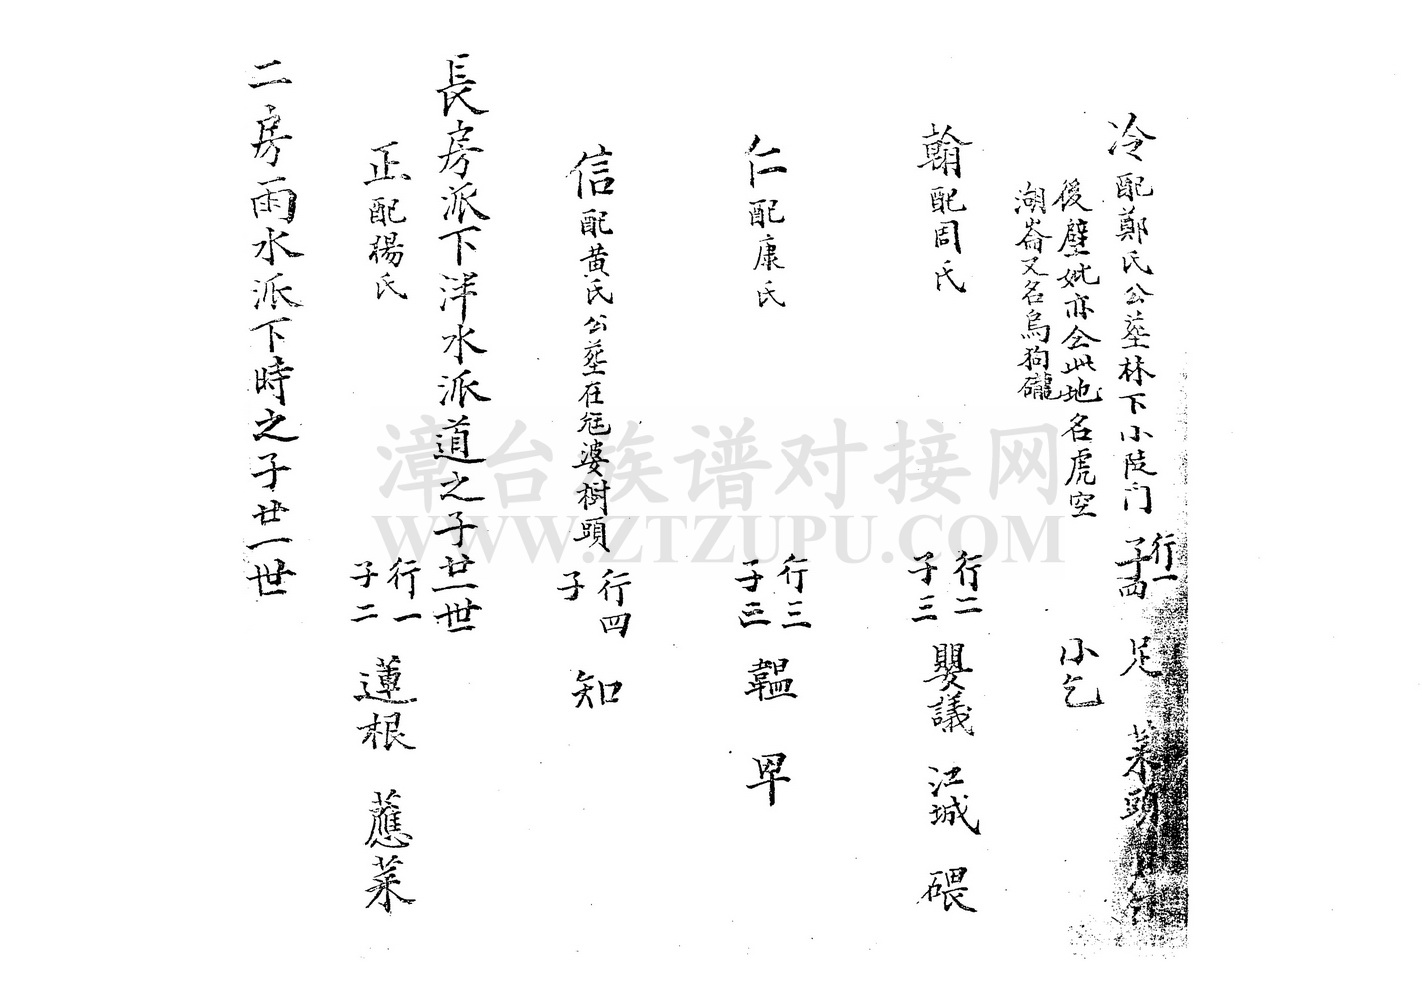 冷配鄭氏公葬林下小陂門 行一 子四 足 菜頭
後壁妣亦仝此地名虎空 小乞
湖崙又名烏狗礲
翰配周氏 行二 子三 嬰議 江城 碨
仁配康氏 行三 子 韞 罕
信配黄氏公葬在 婆樹頭 行四 子 知
長房派下洋水派道之子廿一世
正配楊氏 行一 子二 蓮根 應菜
二房雨水派下時之子廿一世
漳台族谱对接网
WWW.ZTZUPU.COM